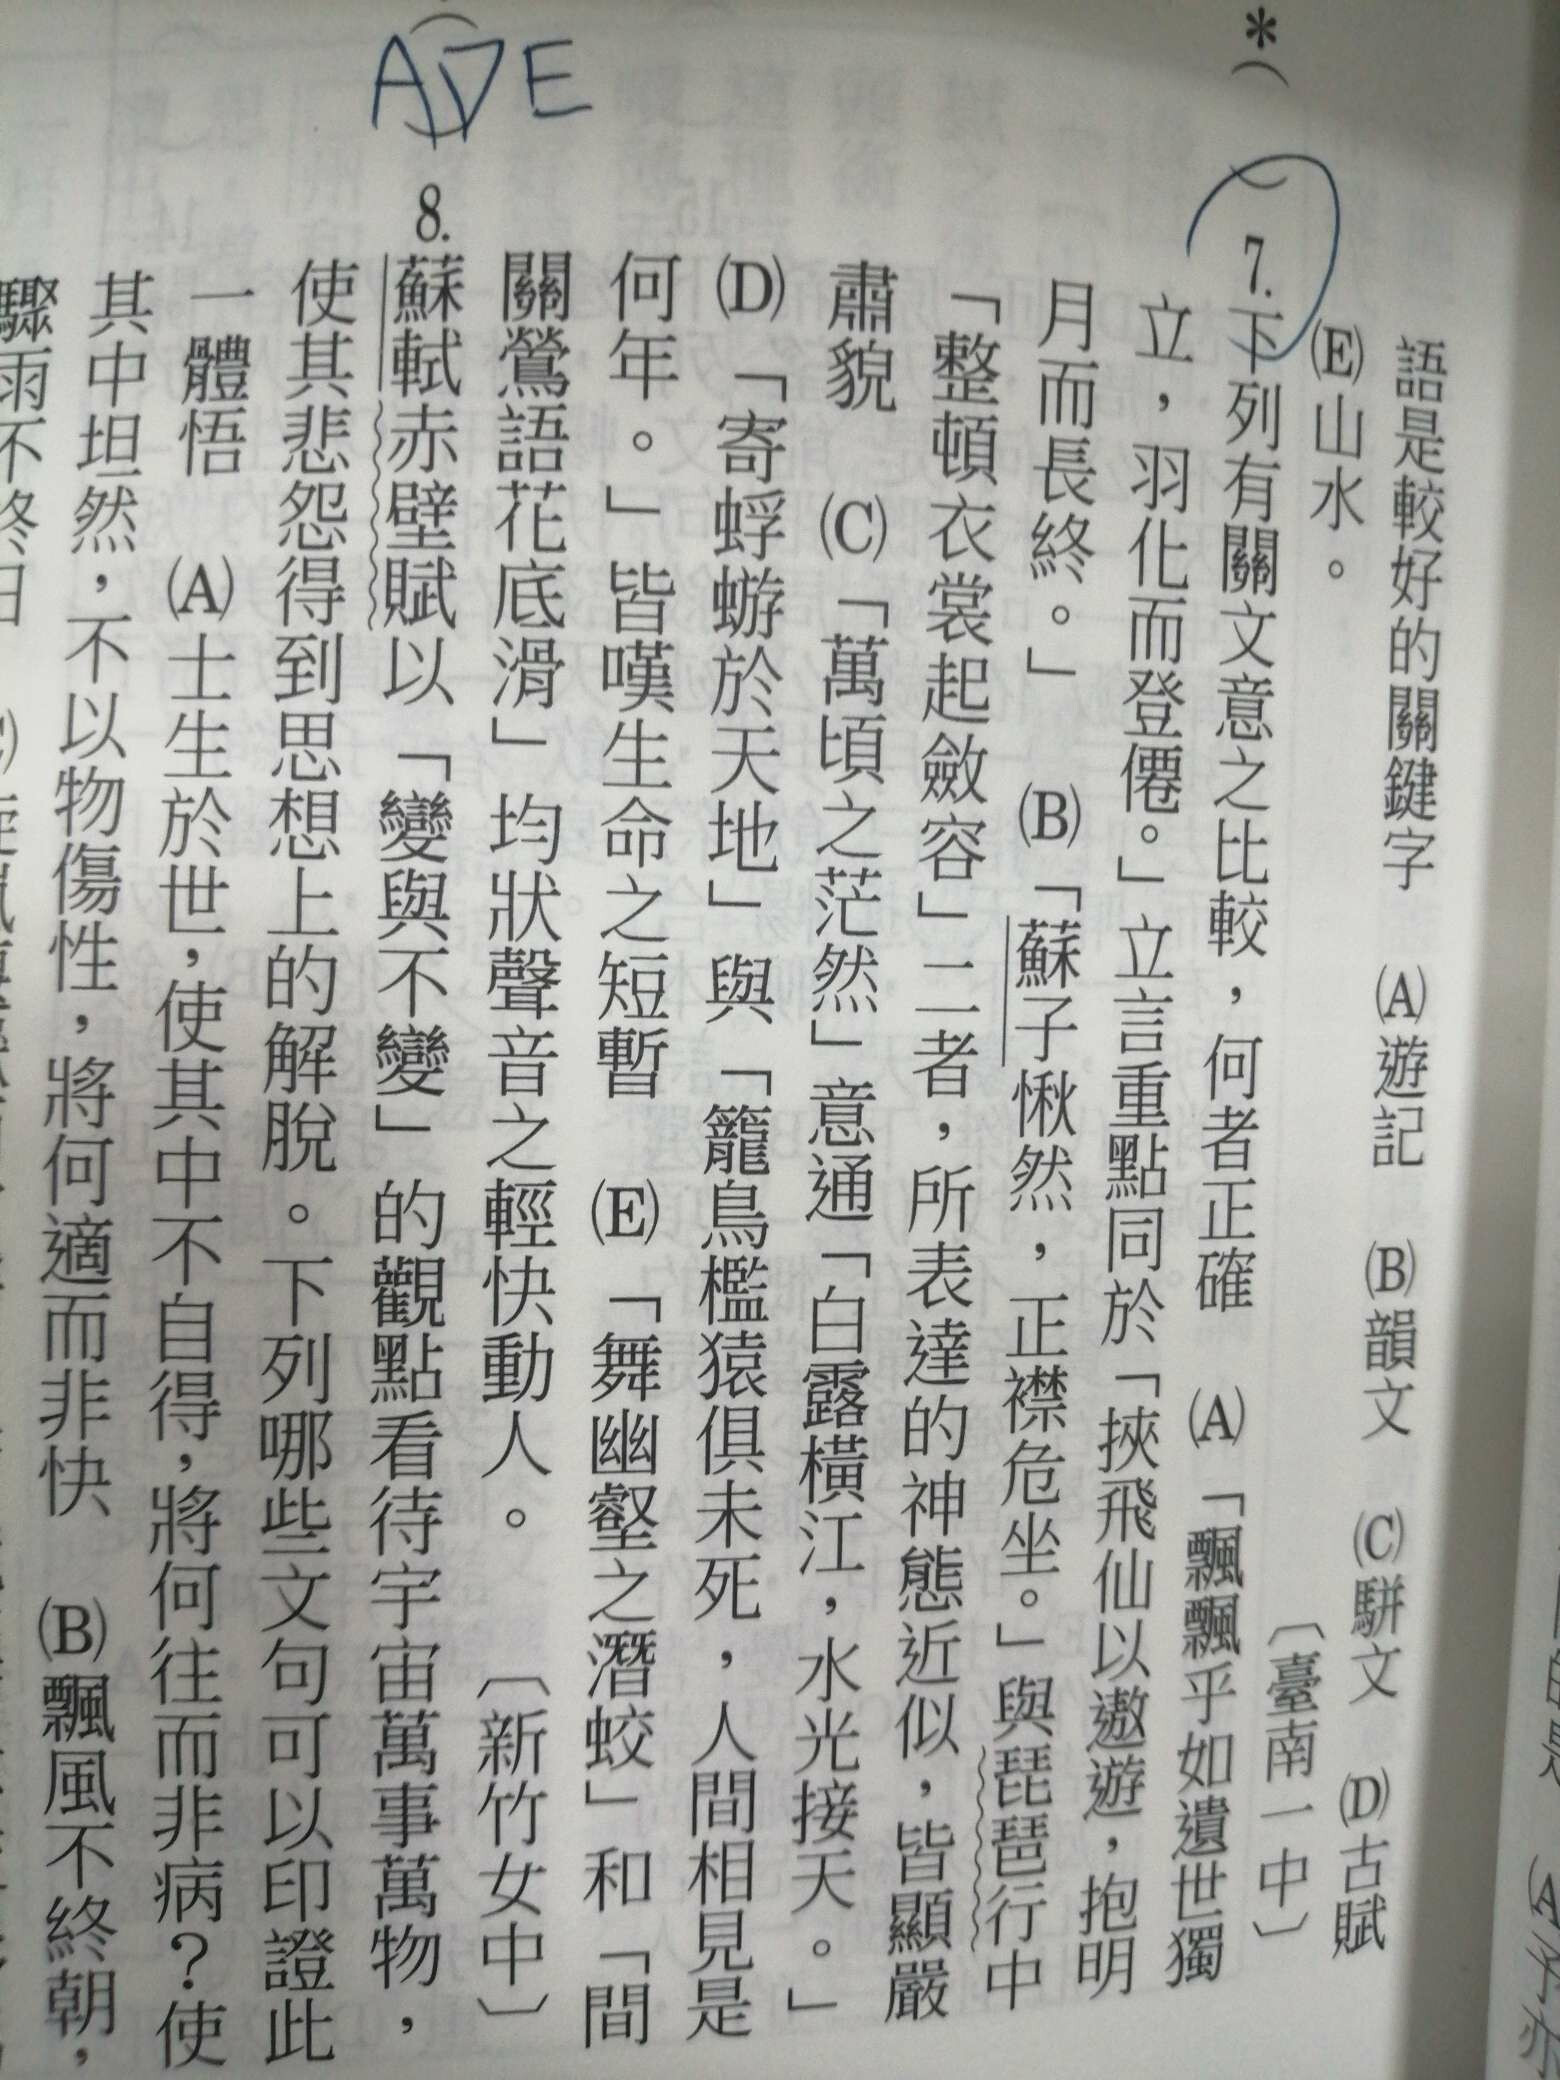 語是較好的關鍵字 (A)遊記 (B)韻文 (C)駢文 (D)古賦
(E)山水。
〔臺南一中〕
*( )7.下列有關文意之比較，何者正確 (A)「飄飄乎如遺世獨
立，羽化而登僊。」立言重點同於「挾飛仙以遨遊，抱明
月而長終。」 (B)「蘇子愀然，正襟危坐。」與琵琶行中
「整頓衣裳起斂容」二者，所表達的神態近似，皆顯嚴
肅貌 (C)「萬頃之茫然」意通「白露橫江，水光接天。」
(D)「寄蜉蝣於天地」與「籠鳥檻猿俱未死，人間相見是
何年。」皆嘆生命之短暫 (E)「舞幽壑之潛蛟」和「間
關鶯語花底滑」均狀聲音之輕快動人。 〔新竹女中〕
(ADE)8.蘇軾赤壁賦以「變與不變」的觀點看待宇宙萬事萬物，
使其悲怨得到思想上的解脫。下列哪些文句可以印證此
一體悟 (A)士生於世，使其中不自得，將何往而非病？使
其中坦然，不以物傷性，將何適而非快 (B)飄風不終朝，
驟雨不終日